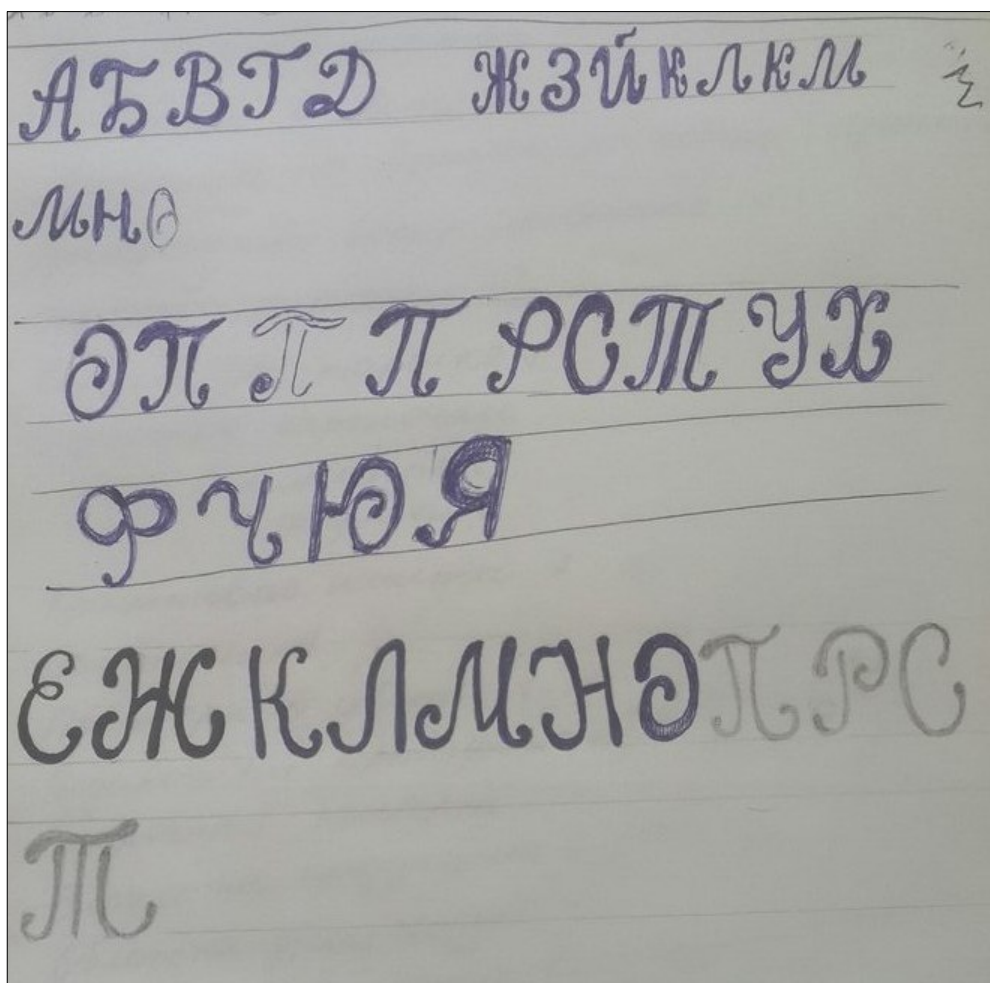 АБВГД ЖЗЙКЛКМ
МНО
ОПППРСТУХ
ФЧЮЯ
ЕЖКЛМНОПРС
Т